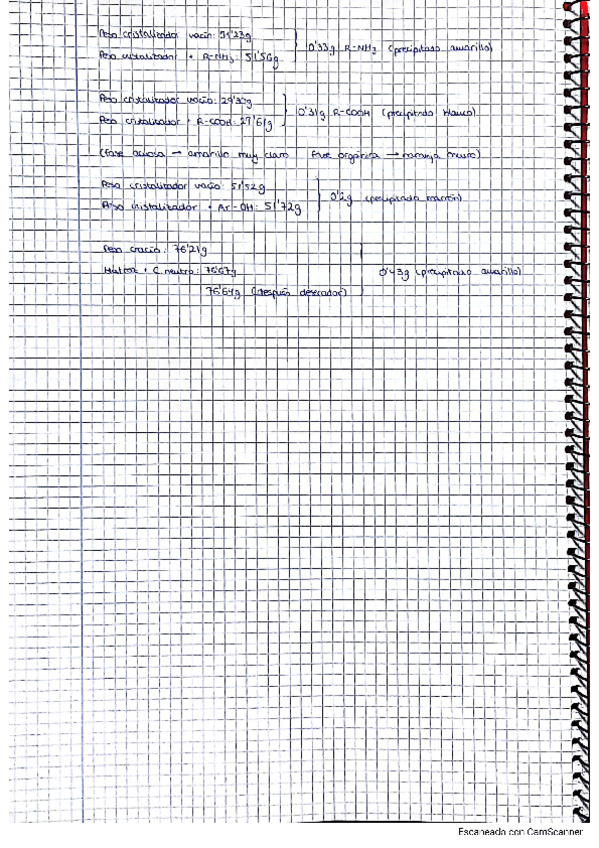 Peso cristalizador vacío: 51'23g
Peso cristalizador + R-NH₂: 51'56g } 0'33g R-NH₂ (precipitado amarillo)
Peso cristalizador vacío: 29'30g
Peso cristalizador + R-COOH: 29'61g } 0'31g R-COOH (precipitado blanco)
(fase acuosa → amarillo muy claro fase orgánica → naranja oscuro)
Peso cristalizador vacío: 51'52g
Peso cristalizador + Ar-OH: 51'72g } 0'2g (precipitado marrón)
Peso vacío: 76'21g
+ C. neutro: 76'67g } 0'43g (precipitado amarillo)
76'64g (después desecador)
Escaneado con CamScanner